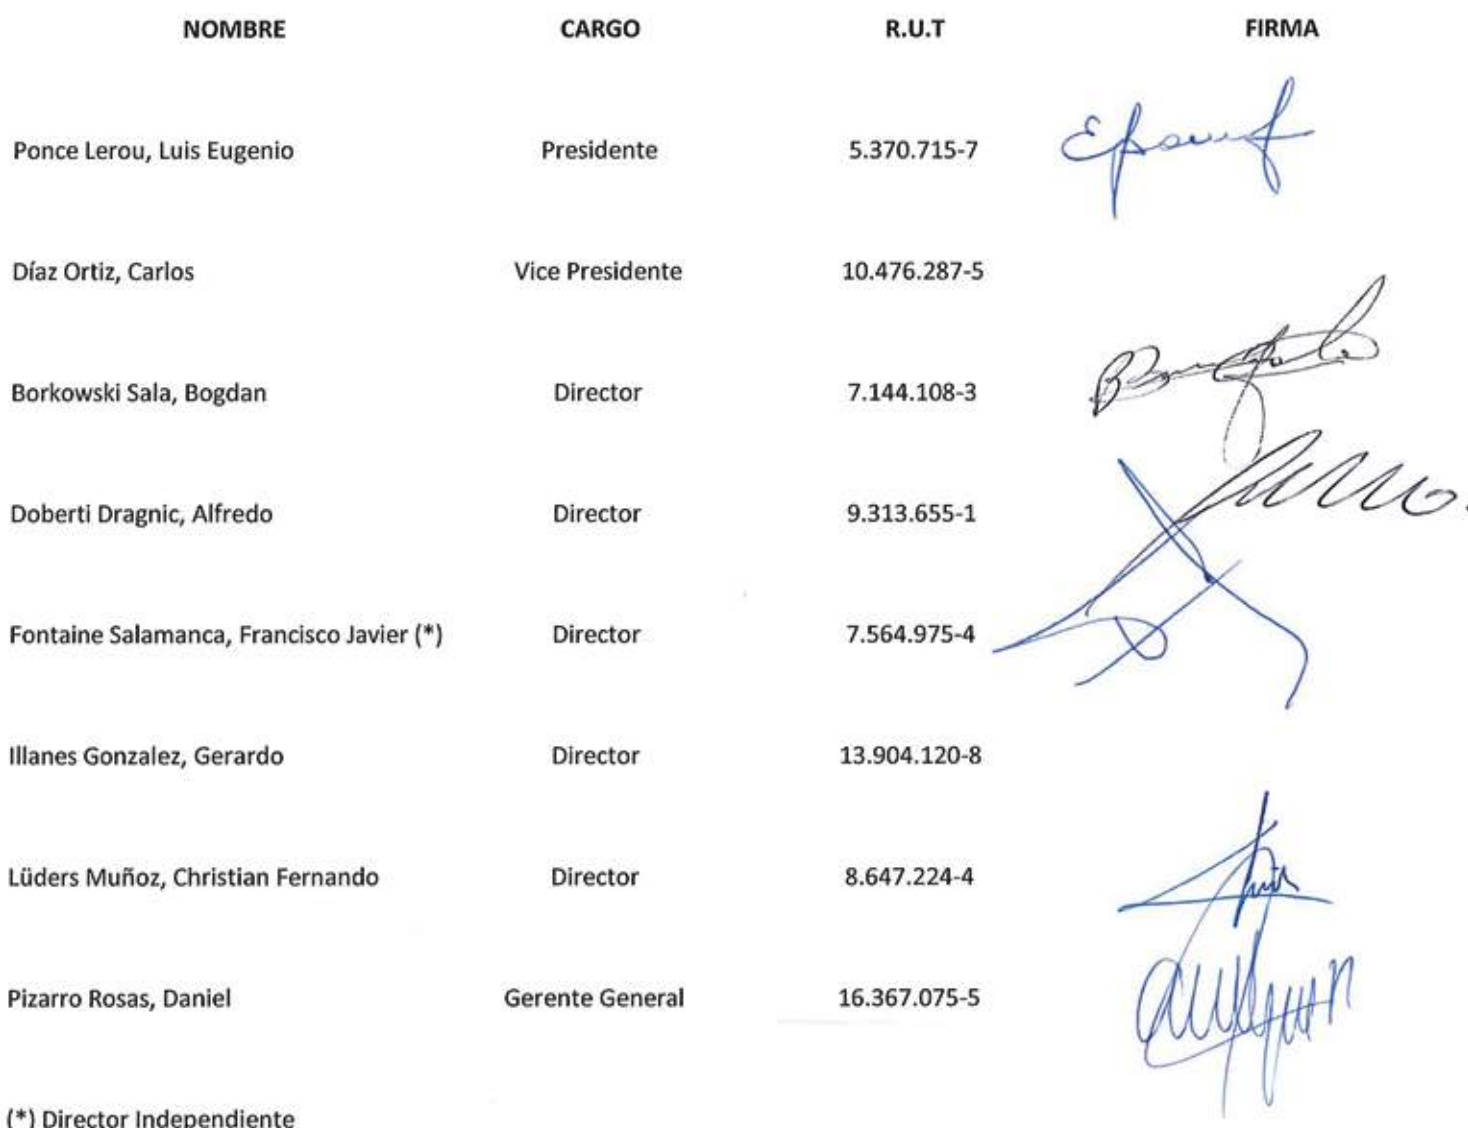 NOMBRE CARGO R.U.T FIRMA
Ponce Lerou, Luis Eugenio Presidente 5.370.715-7
Díaz Ortiz, Carlos Vice Presidente 10.476.287-5
Borkowski Sala, Bogdan Director 7.144.108-3
Doberti Dragnic, Alfredo Director 9.313.655-1
Fontaine Salamanca, Francisco Javier (*) Director 7.564.975-4
Illanes Gonzalez, Gerardo Director 13.904.120-8
Lüders Muñoz, Christian Fernando Director 8.647.224-4
Pizarro Rosas, Daniel Gerente General 16.367.075-5
(*) Director Independiente